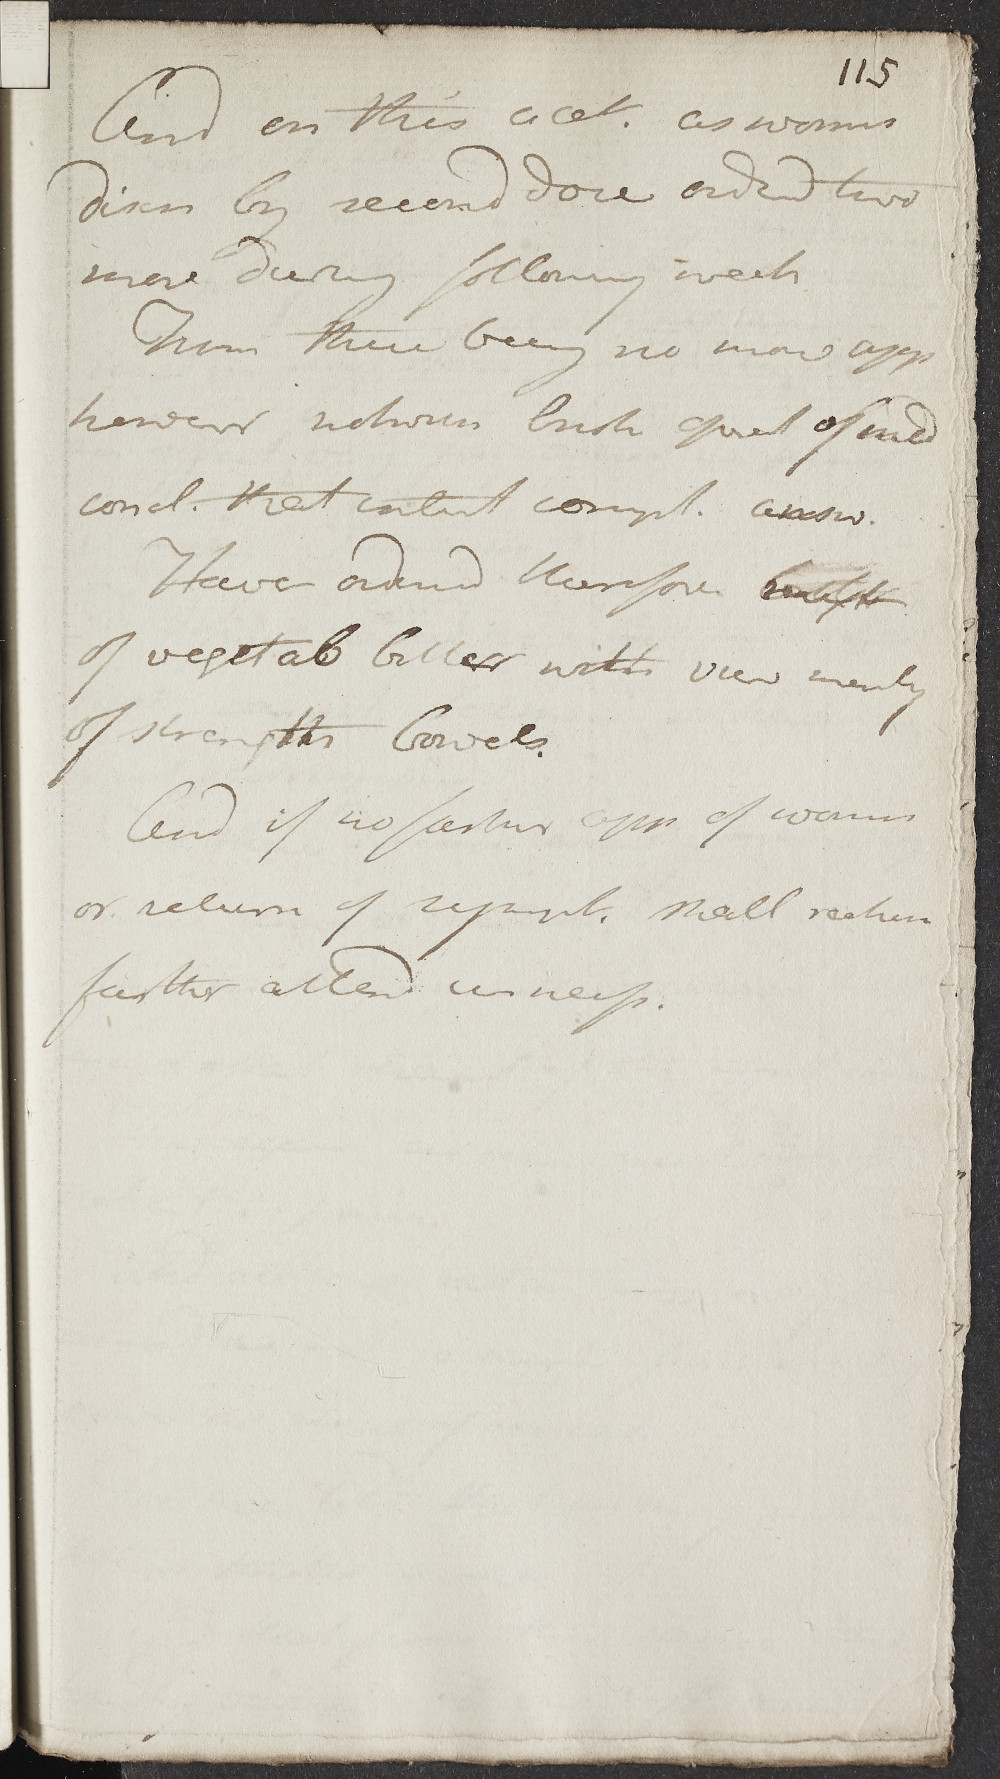 115
And on this acct. as worms
disch by second dose ordrd two
more during following week
From there being no more app
however notwm brisk operat of med
concl. that intent compl. answ.
Have ordered therefore
of vegetab bitter with view merely
of strengthn bowels.
And if no farther app of worms
or return of sympt. shall reckon
farther attend unness.